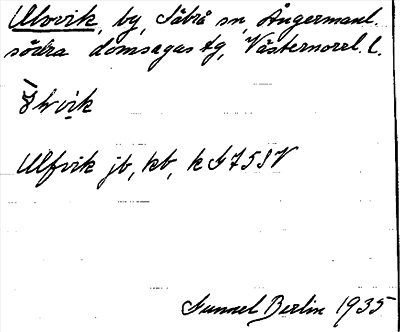 Ulvvik, by, Säbrå sn, Ångermanl.
södra domsagas tg, Västernorrl. l.
Ulfvik jb, kb, k G758V
Gunnel Berlin 1935